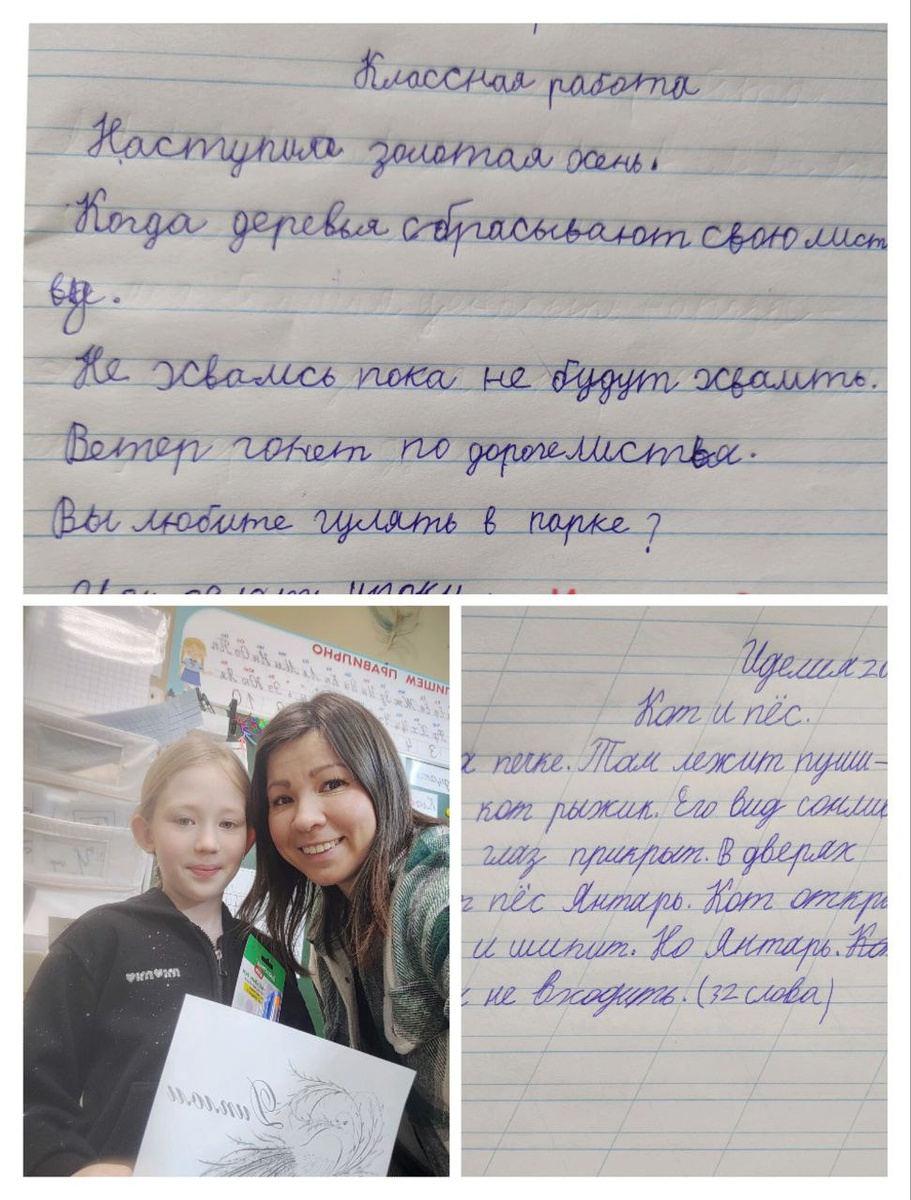 Классная работа
Наступила золотая осень.
Когда деревья сбрасывают свою лист
ву.
Не хвались пока не будут хвалить.
Ветер гонет по дороге листья.
Вы любите гулять в парке?
ПИШЕМ ПРАВИЛЬНО
Диплом
Кот и пёс.
печке. Там лежит пуши-
кот рыжик. Его вид сонли
глаз прикрыт. В дверях
пёс Янтарь. Кот откры
и шипит. Но Янтарь.
не входить. (32 слова)